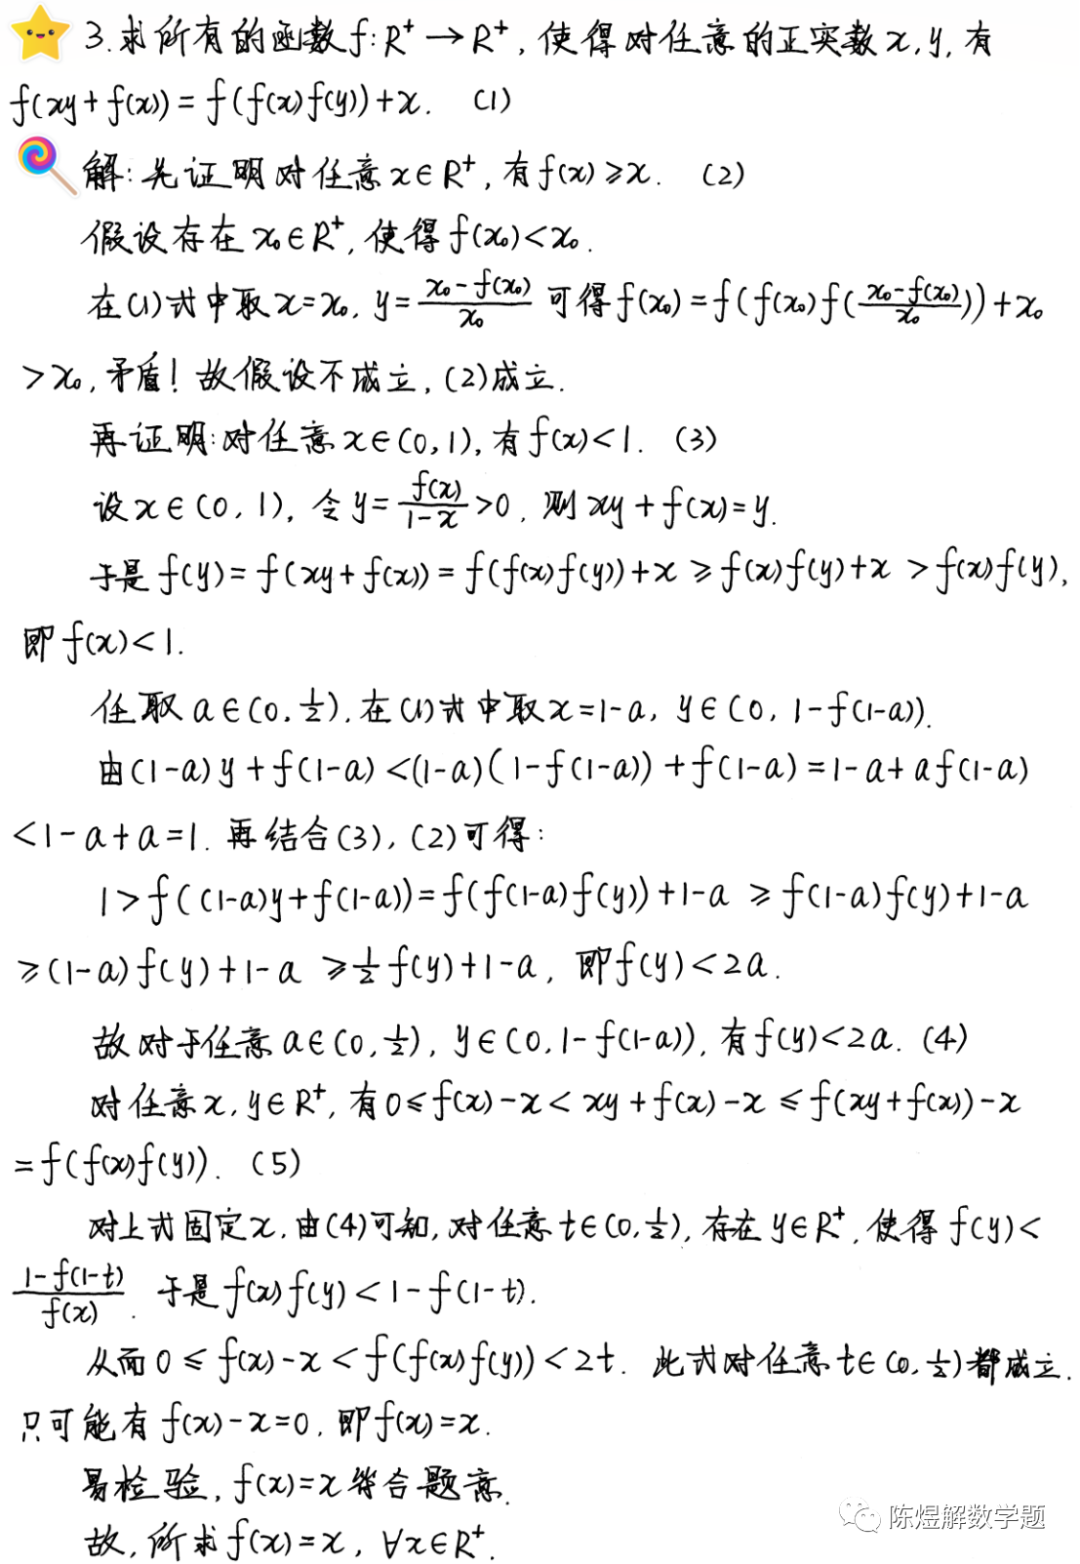 3.求所有的函数f:R⁺→R⁺,使得对任意的正实数x,y,有
f(xy+f(x))=f(f(x)f(y))+x. (1)
解:先证明对任意x∈R⁺,有f(x)≥x. (2)
假设存在x₀∈R⁺,使得f(x₀)<x₀.
在(1)式中取x=x₀, y=(x₀-f(x₀))/x₀ 可得f(x₀)=f(f(x₀)f((x₀-f(x₀))/x₀))+x₀
>x₀,矛盾!故假设不成立,(2)成立.
再证明:对任意x∈(0,1),有f(x)<1. (3)
设x∈(0,1),令y=f(x)/(1-x)>0,则xy+f(x)=y.
于是f(y)=f(xy+f(x))=f(f(x)f(y))+x≥f(x)f(y)+x>f(x)f(y),
即f(x)<1.
任取a∈(0,1/2),在(1)式中取x=1-a, y∈(0,1-f(1-a)).
由(1-a)y+f(1-a)<(1-a)(1-f(1-a))+f(1-a)=1-a+af(1-a)
<1-a+a=1.再结合(3),(2)可得:
1>f((1-a)y+f(1-a))=f(f(1-a)f(y))+1-a≥f(1-a)f(y)+1-a
≥(1-a)f(y)+1-a≥1/2f(y)+1-a,即f(y)<2a.
故对于任意a∈(0,1/2), y∈(0,1-f(1-a)),有f(y)<2a. (4)
对任意x,y∈R⁺,有0≤f(x)-x<xy+f(x)-x≤f(xy+f(x))-x
=f(f(x)f(y)). (5)
对上式固定x,由(4)可知,对任意t∈(0,1/2),存在y∈R⁺,使得f(y)<
(1-f(1-t))/f(x).于是f(x)f(y)<1-f(1-t).
从而0≤f(x)-x<f(f(x)f(y))<2t.此式对任意t∈(0,1/2)都成立.
只可能有f(x)-x=0,即f(x)=x.
易检验,f(x)=x符合题意.
故,所求f(x)=x, ∀x∈R⁺.
陈煜解数学题